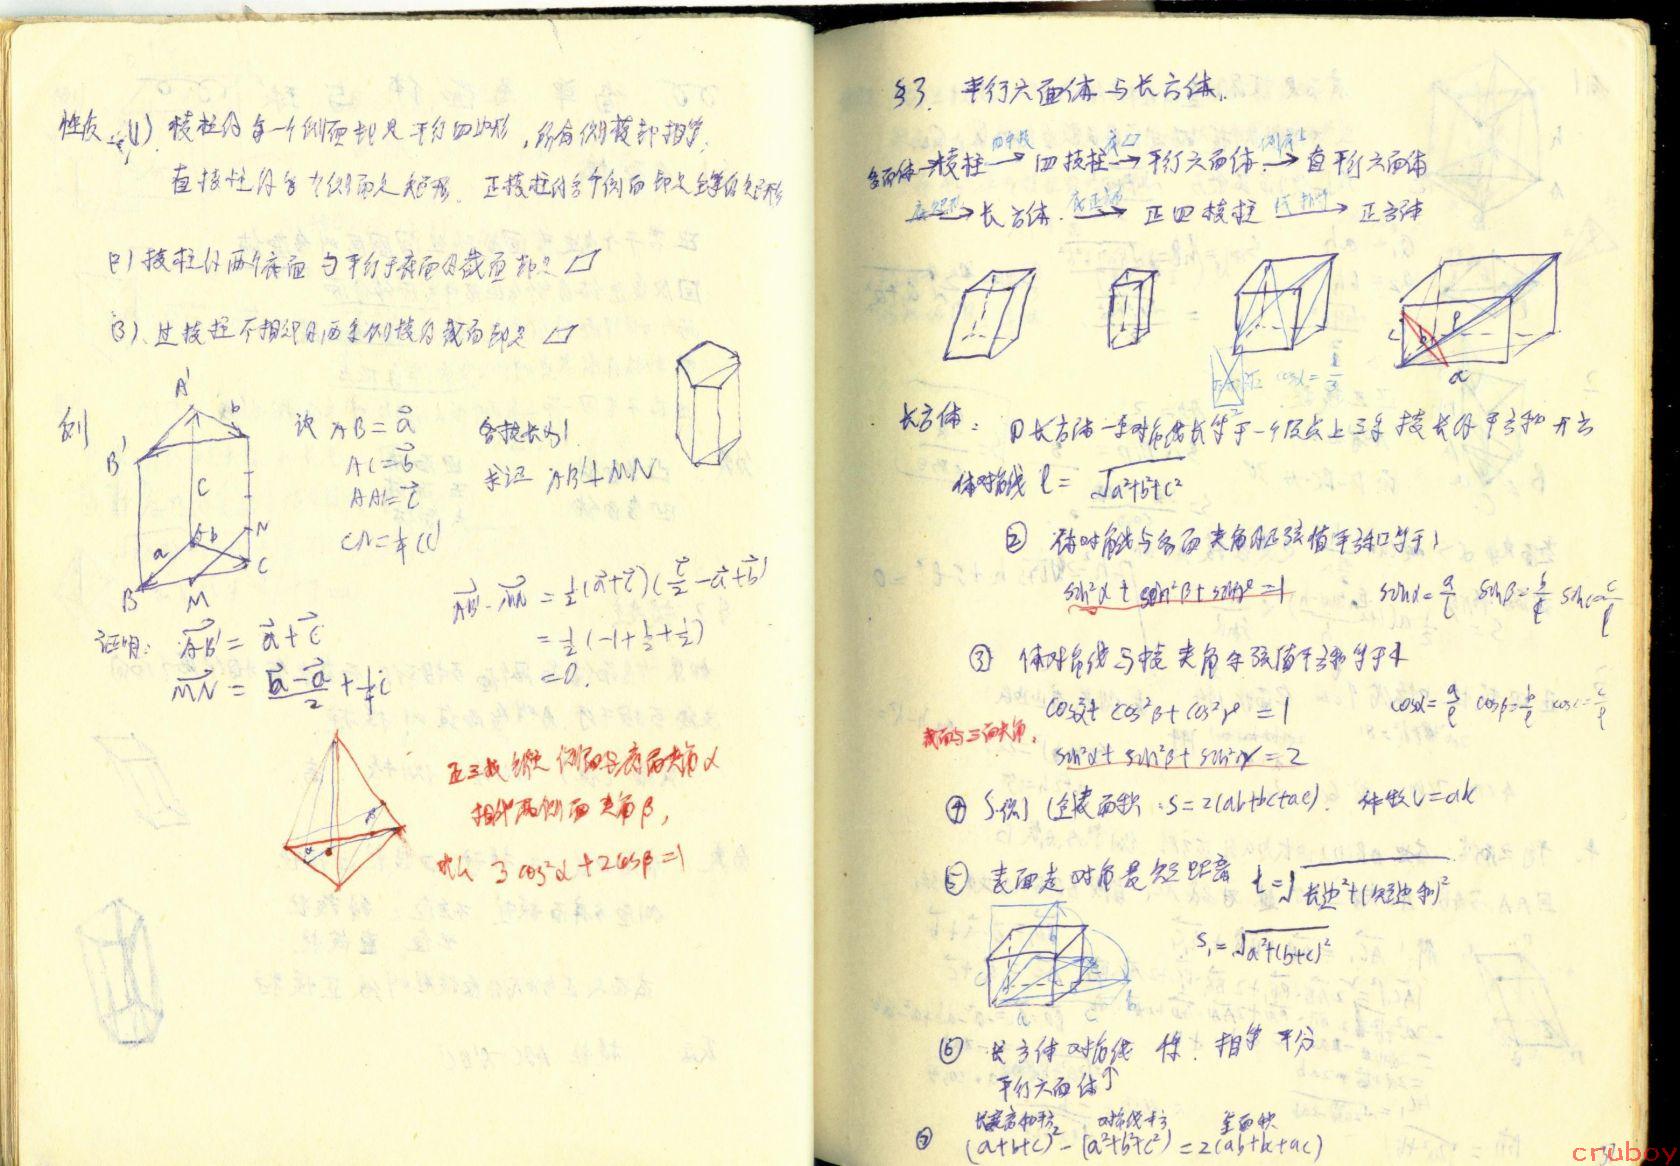 性质 (1). 棱柱的每一个侧面都是平行四边形，所有侧棱都相等.
直棱柱的每个侧面是矩形. 正棱柱的各个侧面都是全等的矩形
(2) 棱柱的两个底面与平行于底面的截面都是
(3)、过棱柱不相邻的两条侧棱的截面都是 ▱
例
A'
B'
C
N
a
b
C
B
M
设 AB = a⃗
AC = b⃗
AA' = c⃗
CN = ¼ CC'
各棱长为1.
求证 AB'⊥MN
证明: AB'⃗ = a⃗ + c⃗
MN⃗ = (b⃗ - a⃗)/2 + ¼c⃗
AB'⃗ · MN⃗ = ½(a⃗+c⃗)(c⃗/2 - a⃗ + b⃗)
= ½(-1 + ½ + ½)
= 0.
正三棱锥 侧面与底面夹角α
相邻两侧面夹角β,
那么 3cos²α + 2cosβ = 1
§3. 平行六面体与长方体.
多面体→棱柱 → 四棱柱 底▱→ 平行六面体 侧底⊥→ 直平行六面体
底矩形→ 长方体 → 正四棱柱 → 正方体
a
长方体: ① 长方体一条对角线长等于一个顶点上三条棱长的平方和开方
体对角线 l = √(a²+b²+c²)
② 体对角线与各面夹角正弦值平方和等于1
sin²α + sin²β + sin²γ = 1 sinα = a/l sinβ = b/l
③ 体对角线与棱夹角余弦值平方和等于1
cos²α + cos²β + cos²γ = 1 cosα = a/l cosβ = b/l
截面与三面夹角.
sin²α + sin²β + sin²γ = 2
④ (全)表面积: S = 2(ab+bc+ac). 体积V = abc
⑤ 表面走对角最短距离 l = √(长边²+(短边和)²)
S₁ = √(a²+(b+c)²)
⑥ 长方体对角线 相等 平分
平行六面体↑
长宽高和平方 对角线平方 全面积
⑦ (a+b+c)² - (a²+b²+c²) = 2(ab+bc+ac)
cruboy